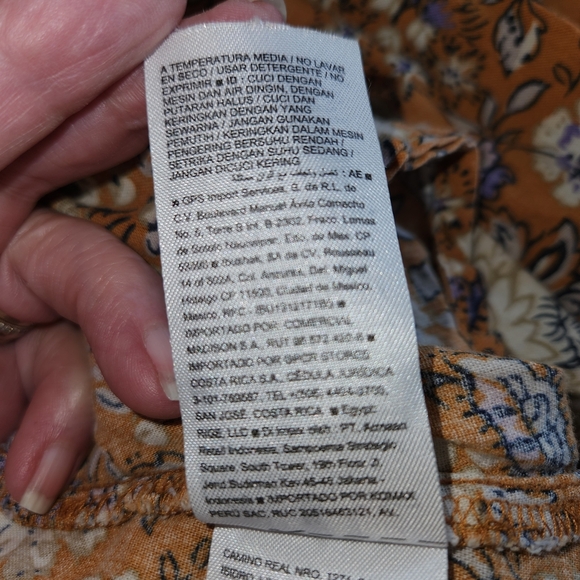 A TEMPERATURA MEDIA / NO LAVAR
EN SECO / USAR DETERGENTE / NO
EXPRIMIR ■ ID : CUCI DENGAN
MESIN DAN AIR DINGIN, DENGAN
PUTARAN HALUS / CUCI DAN
KERINGKAN DENGAN YANG
SEWARNA / JANGAN GUNAKAN
PEMUTIH / KERINGKAN DALAM MESIN
PENGERING BERSUHU RENDAH /
SETRIKA DENGAN SUHU SEDANG /
JANGAN DICUCI KERING
■ AE :
GPS Import Services, S. de R.L. de
C.V. Boulevard Manuel Avila Camacho
No. 5, Torre S Int. B-2302, Fracc. Lomas
de Sotelo Naucalpan, Edo. de Mex. CP
■ SA de CV. Rousseau
14 of 302A, Col. Anzures, Del. Miguel
Hidalgo CP 11590, Ciudad de Mexico,
Mexico, RFC - ■
IMPORTADO POR: COMERCIAL
MADISON S.A., RUT ■
IMPORTADO POR STORES
COSTA RICA S.A., CÉDULA JURÍDICA
TEL
SAN JOSÉ, COSTA RICA ■ Egypt,
RIGE, LLC ■ Di impor oleh: PT.
Retail Indonesia, Sampoerna Strategic
Square, South Tower, 19th Floor, Jl.
Jend.Sudirman Kav 45-48 Jakarta -
Indonesia ■ IMPORTADO POR KOMAX
PERÚ SAC, RUC AV.
CAMINO REAL NRO.
ISIDRO